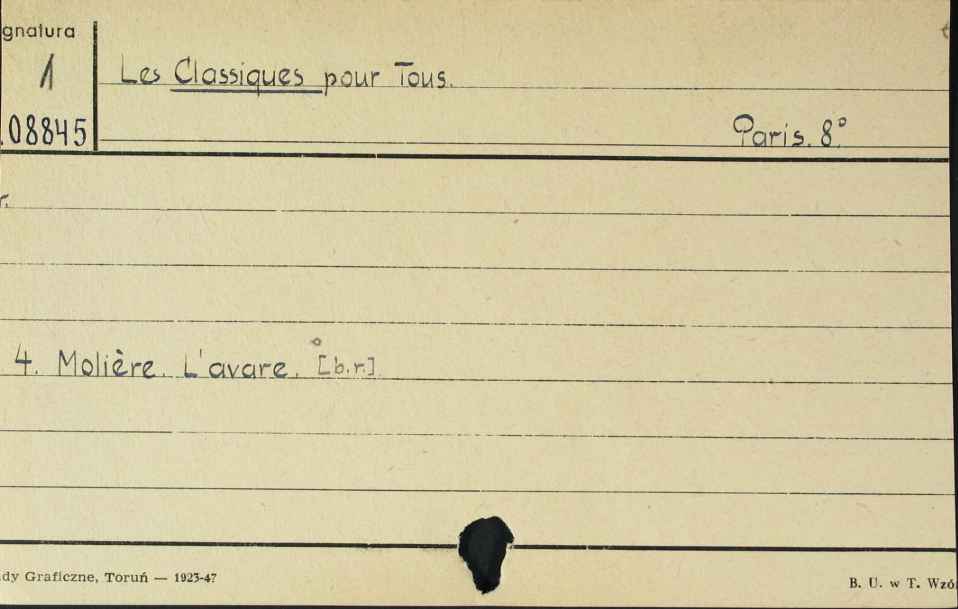 gnatura
1
Les Classiques pour Tous.
.08845
Paris. 8°
r.
4. Molière. L'avare. [b.r.]
dy Graficzne, Toruń — 1923-47
B. U. w T. Wzó